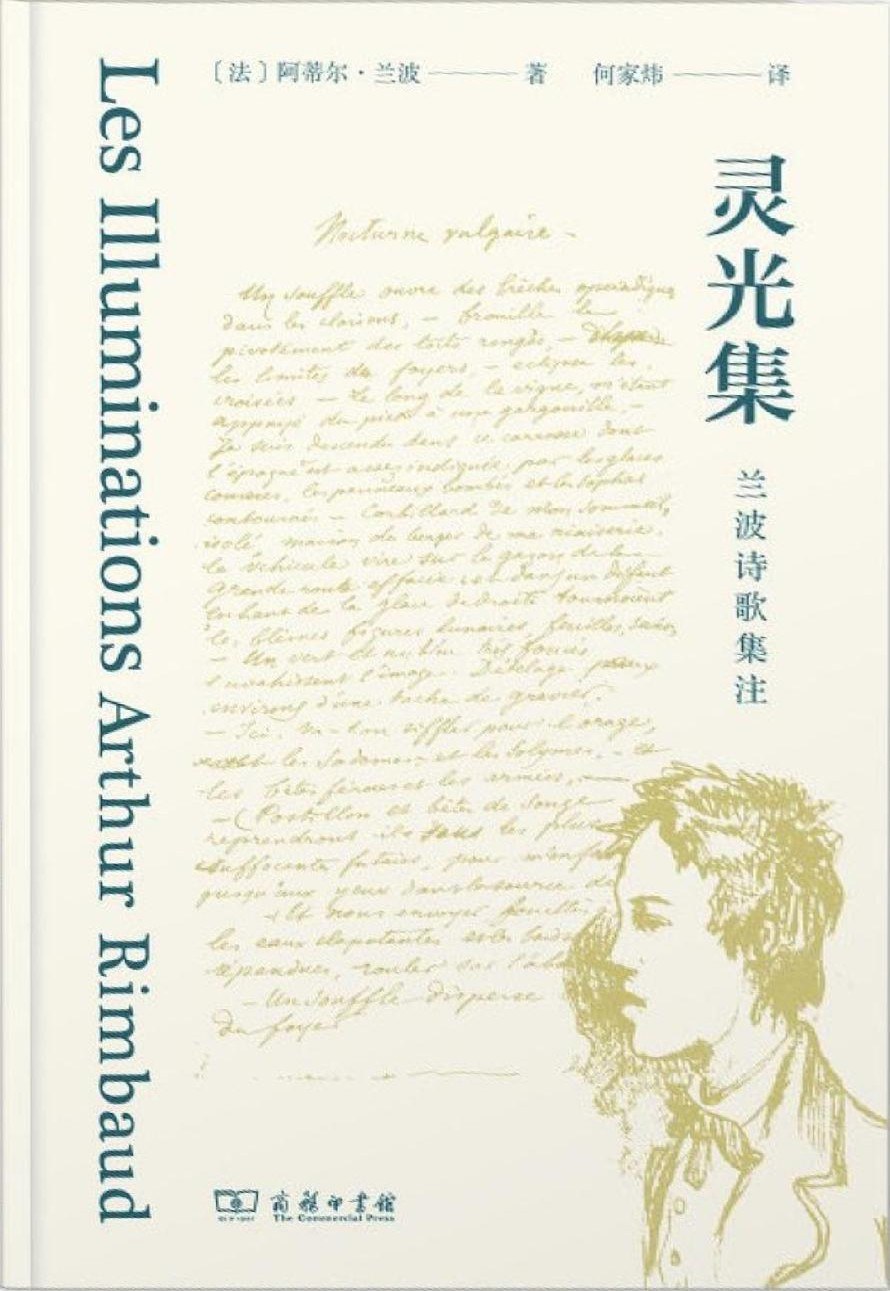 〔法〕阿蒂尔·兰波 著 何家炜 译
灵光集
兰波诗歌集注
Les Illuminations Arthur Rimbaud
Nocturne vulgaire –
Un souffle ouvre des brèches opéradiques
dans les cloisons, – brouille le
pivotement des toits rongés, –
les limites des foyers, – éclipse les
croisées – Le long de la vigne, m'étant
appuyé du pied à une gargouille, –
Je suis descendu dans ce carrosse dont
l'époque est assez indiquée par les glaces
convexes, les panneaux bombés et les sophas
contournés – Corbillard de mon sommeil,
isolé, maison de berger de ma niaiserie,
le véhicule vire sur le gazon de la
grande route effacée : et dans un défaut
en haut de la glace de droite tournoient
les blêmes figures lunaires, feuilles, seins,
– Un vert et un bleu très foncés
envahissent l'image. Dételage
environs d'une tache de gravier.
– Ici, va-t-on siffler pour l'orage,
et les Sodomes – et les Solymes, – et
les bêtes féroces et les armées, –
– (Postillon et bêtes de songe
reprendront-ils sous les plus
suffocantes futaies, pour m'enfon
jusqu'aux yeux dans la source de
– Et nous envoyer, fouettés
les eaux clapotantes et les boiss
répandues, rouler sur l'abo
– Un souffle disperse
du foyer
商務印書館
The Commercial Press